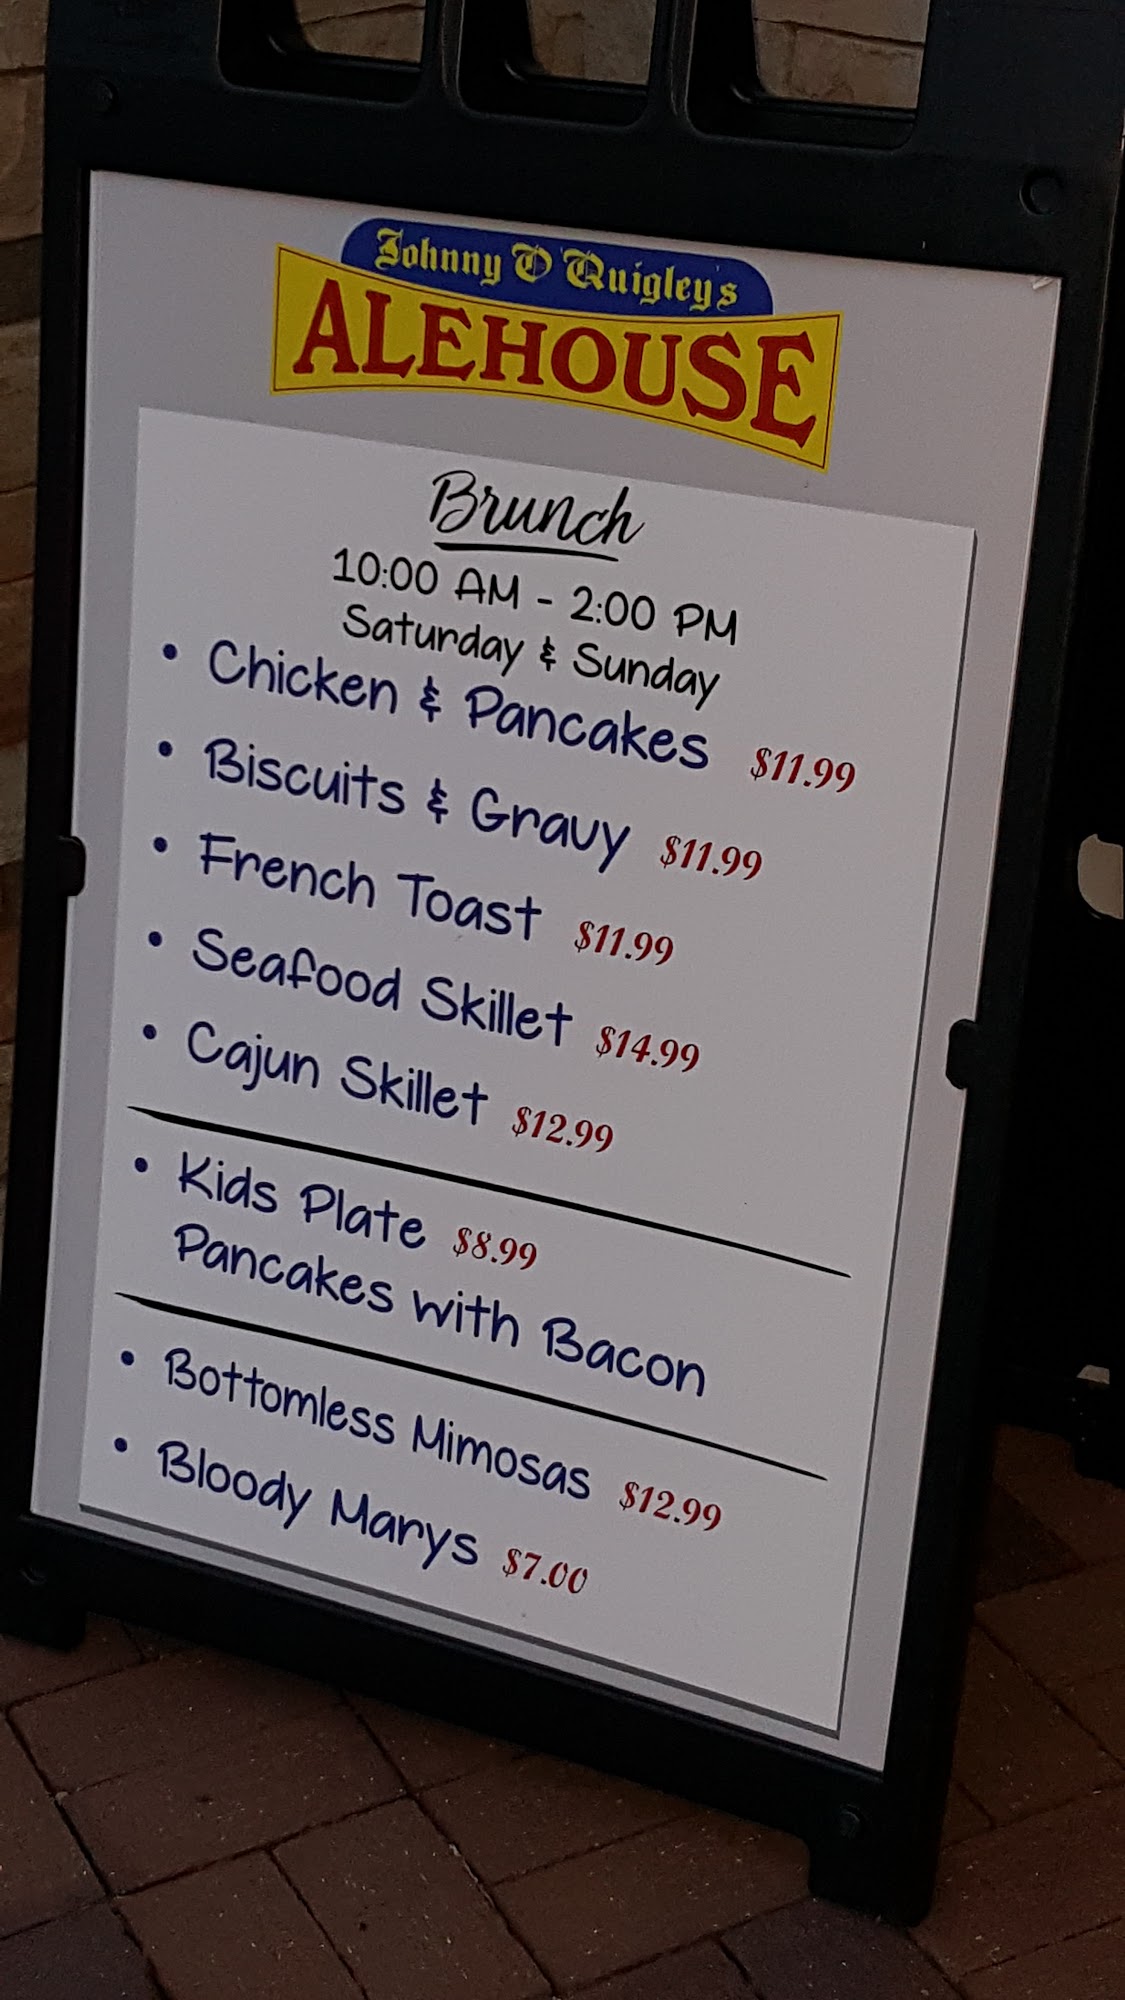 Johnny O'Quigley's
ALEHOUSE
Brunch
10:00 AM - 2:00 PM
Saturday & Sunday
• Chicken & Pancakes $11.99
• Biscuits & Gravy $11.99
• French Toast $11.99
• Seafood Skillet $14.99
• Cajun Skillet $12.99
• Kids Plate $8.99
Pancakes with Bacon
• Bottomless Mimosas $12.99
• Bloody Marys $7.00